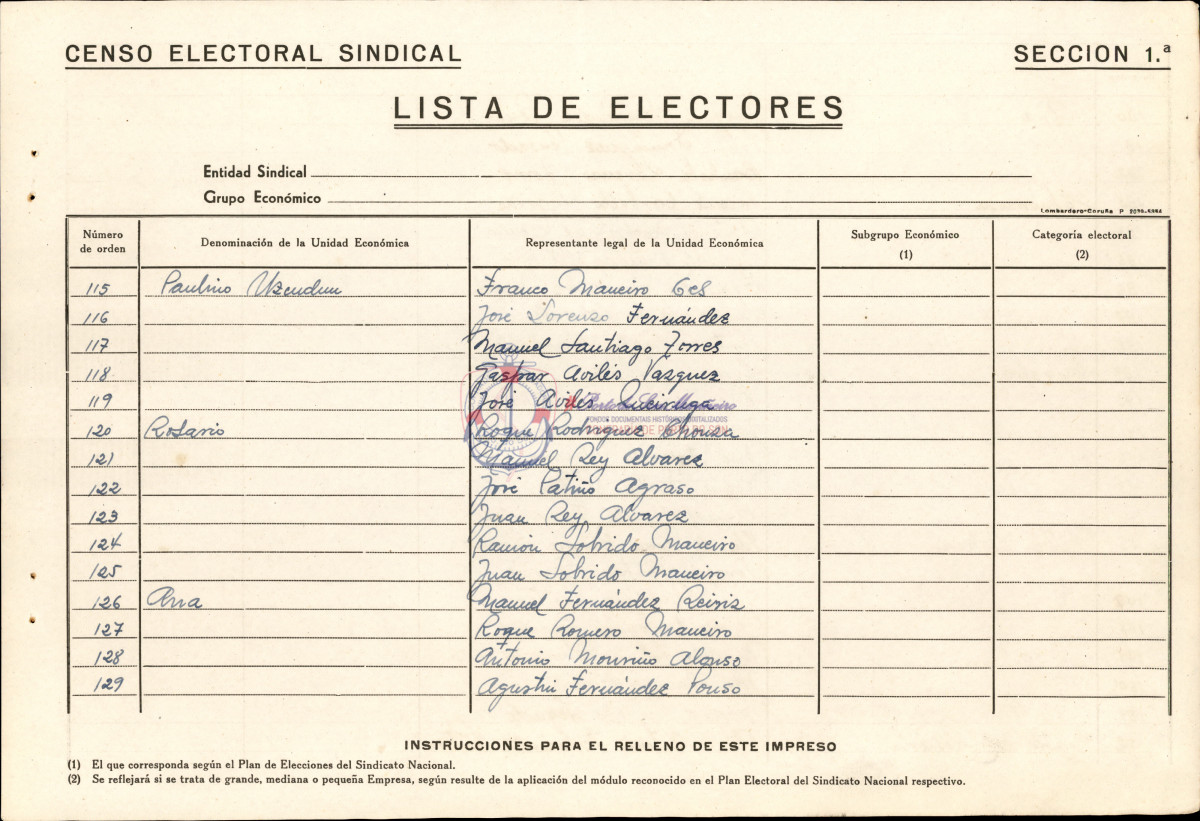 CENSO ELECTORAL SINDICAL
SECCION 1.ª
LISTA DE ELECTORES
Entidad Sindical
Grupo Económico
Lombardero-Coruña P 2039-5954
Número de orden Denominación de la Unidad Económica Representante legal de la Unidad Económica Subgrupo Económico (1) Categoría electoral (2)
115 Paulino Uzcudun Franco Maneiro Ges
116 José Lorenzo Fernández
117 Manuel Santiago Torres
118 Gaspar Avilés Vazquez
119 José Avilés Queiruga
120 Rosario Roque Rodriguez Chouza
121 Manuel Rey Alvarez
122 José Patiño Agraso
123 Juan Rey Alvarez
124 Ramón Sobrido Maneiro
125 Juan Sobrido Maneiro
126 Ana Manuel Fernández Reiriz
127 Roque Romero Maneiro
128 + Antonio Mouriño Alonso
129 Agustin Fernández Pouso
FONDOS DOCUMENTAIS HISTÓRICOS DIXITALIZADOS
INSTRUCCIONES PARA EL RELLENO DE ESTE IMPRESO
(1) El que corresponda según el Plan de Elecciones del Sindicato Nacional.
(2) Se reflejará si se trata de grande, mediana o pequeña Empresa, según resulte de la aplicación del módulo reconocido en el Plan Electoral del Sindicato Nacional respectivo.